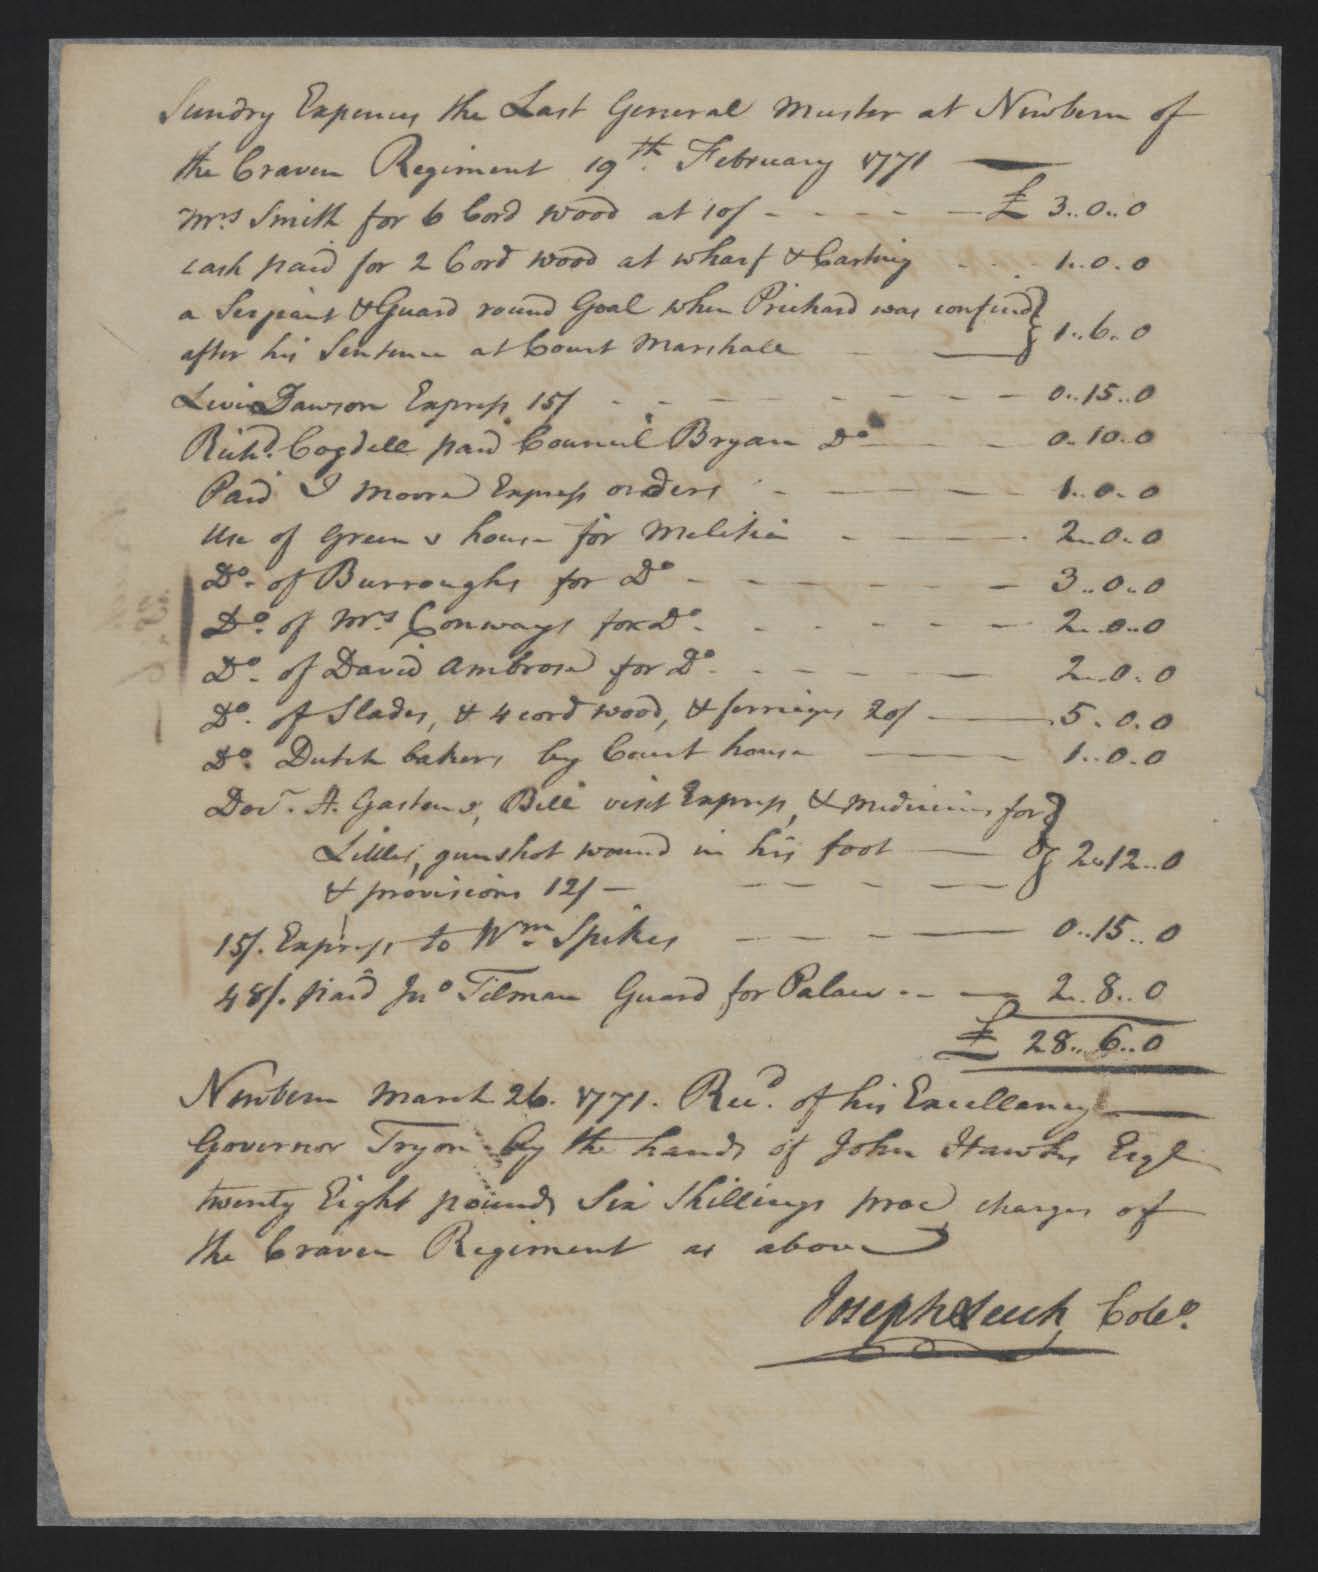 Sundry Expences the Last General Muster at Newbern of
the Craven Regiment 19th. February 1771
Mrs Smith for 6 Cord wood at 10/ - - - - - £ 3..0..0
cash paid for 2 Cord wood at wharf & Carting - - - 1..0..0
a Serjeant & Guard round Goal when Prichard was confined
after his Sentence at Court Marshall - — } 1..6..0
Levi Dawson Express 15/ - - - - - - - - - 0..15..0
Richd. Cogdell paid Council Bryan Do - - - 0..10..0
Paid J Moore Express orders - - - - - - 1..0..0
Use of Greens house for Melitia - - - - 2..0..0
Do. of Burroughs for Do - - - - - - - 3..0..0
Do. of Mrs Conways for Do. - - - - - - 2..0..0
Do. of David Ambrose for Do. - - - - - 2..0..0
Do. of Slades, & 4 cord wood, & ferriages 20/ — 5..0..0
Do. Dutch bakers by Court house — — 1..0..0
Docr. A. Gastons, Bill visit Express, & Medicines for
Littles, gunshot wound in his foot — } 2..12..0
& provisions 12/ — - - - -
15/. Express to Wm. Spikes - - - — 0..15..0
48/. paid Jno Tilman Guard for Palace - - — 2..8..0
£ 28..6..0
Newbern March 26. 1771. Recd. of his Excellancy
Governor Tryon by the hands of John Hawks Esqr
twenty Eight pounds Six Shillings proc charges of
the Craven Regiment as above
Joseph Leech Colo.